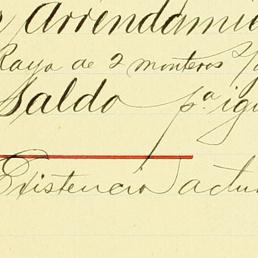 Arrendamie
Raya de 2 monteros
Saldo pª igu
Existencia actu